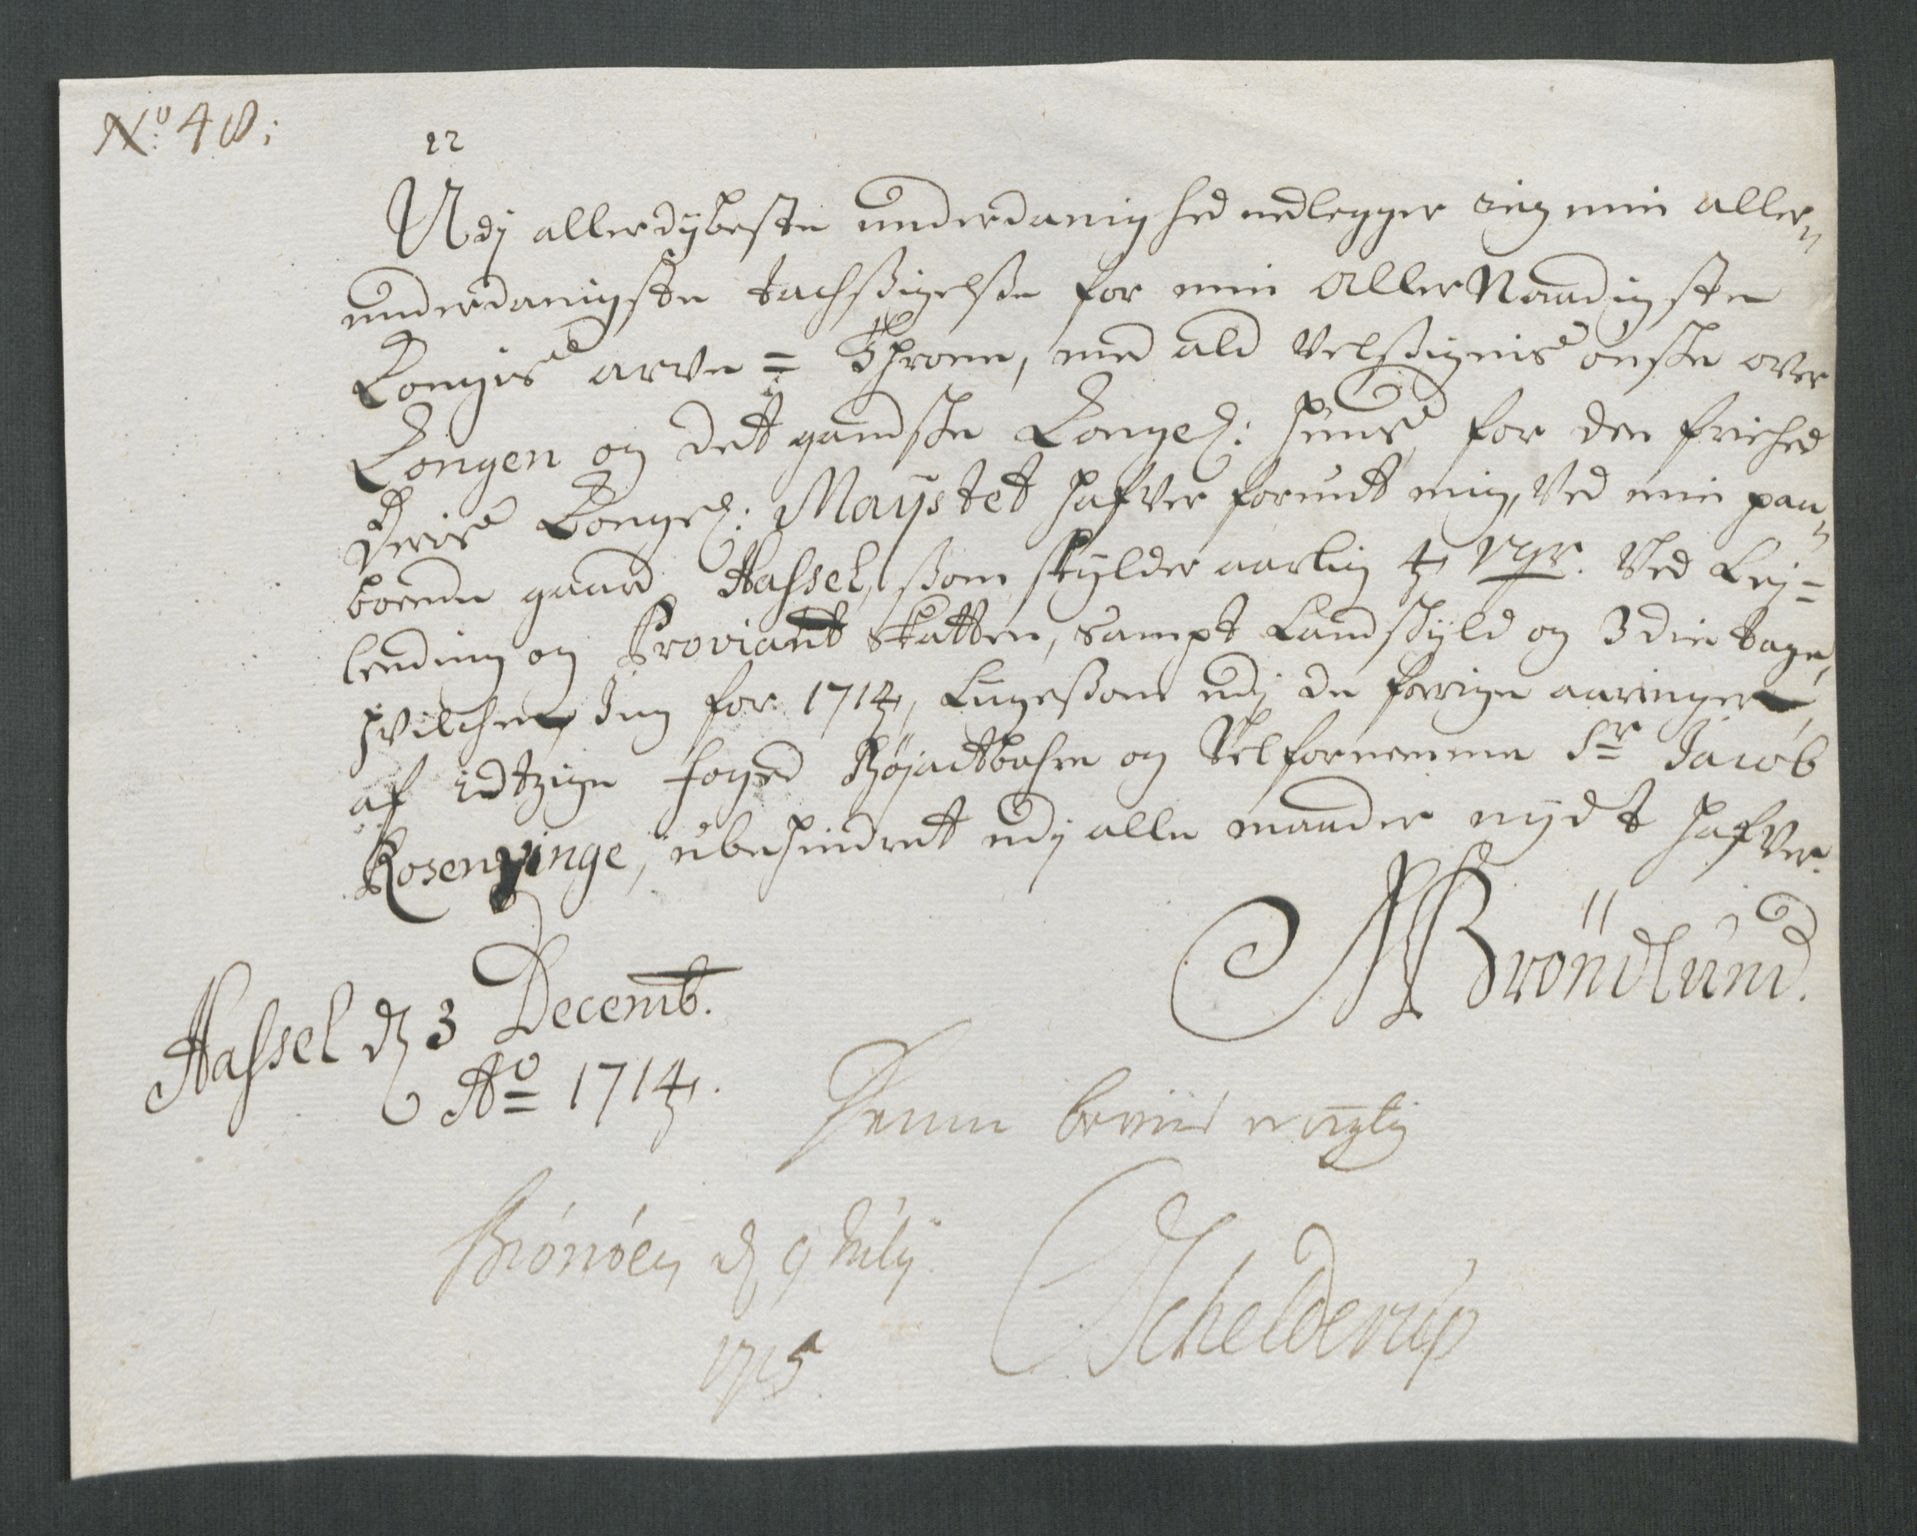 No 48;
12
Udj allerdybeste underdanighed nedlegger Jeg min aller„
underdanigste tachsigelse for min AllerNaadigste
Kongis arve = Throne, med ald velsignis ønske over
Kongen og det gandske Kongel: huus, for den friehed
Deris Kongel: Maystet hafver forundt mig, ved min paa„
boende gaard Hassel, som skylder aarlig 4 vgr. Ved Lej=
lending og Proviant skatten, sampt Landskyld og 3die tage,
hvilchen Jeg for 1714, Ligesom udj de forrige aaringer,
af idtzige foged Høyactbahre og Velfornemme Sr Jacob
Rosenvinge, ubehindret udj alle maader nydt hafver.
Brøndlund.
Hassel d 3 Decemb.
Ao 1714.
Denne beviis er rigtig
Brønøen d 9 July
1715.
Schelderup